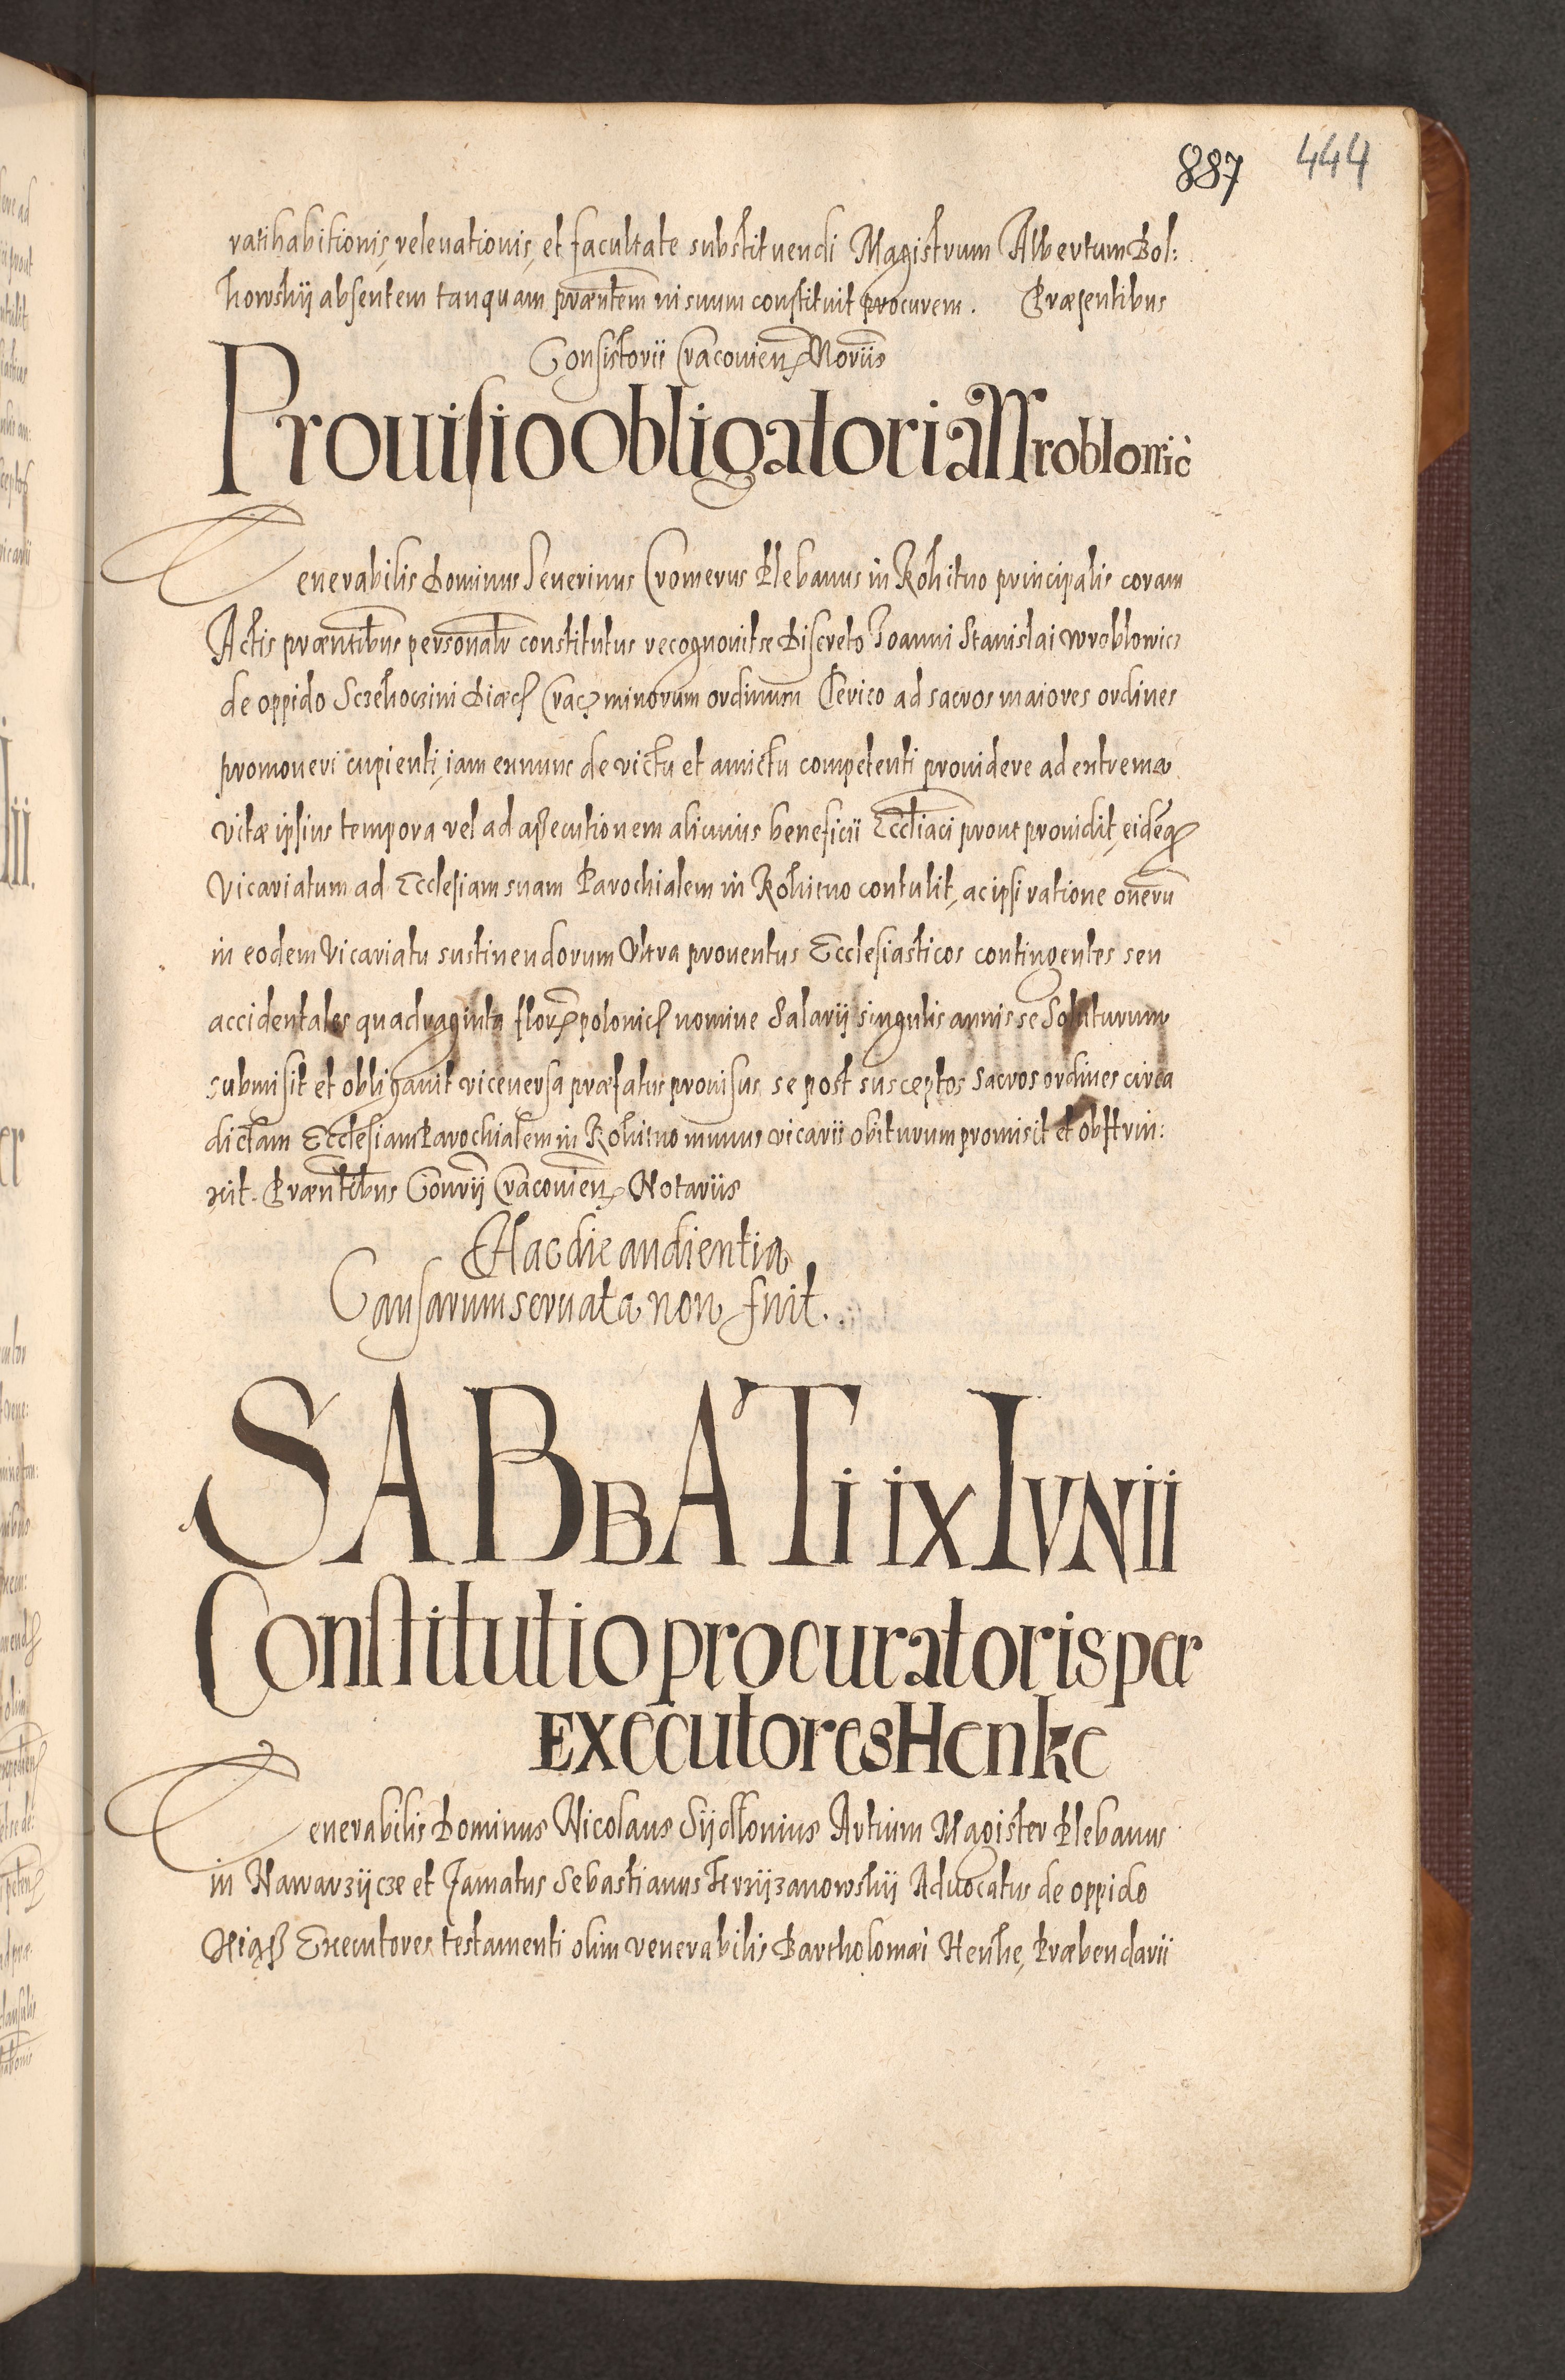 887 444
ratihabitionis, releuationis, et facultate substituendi Magistrum Albertum Bol:
kowskÿ absentem tanquam præntem in suum constituit procurem. Præsentibus
Consistorii Cracouien Noriis
Prouisio obligatoria Wroblowic
Venerabilis Dominus Seuerinus Cromerus Plebanus in Rokitno principalis coram
Actis præntibus personalr constitutus recognouit se Discreto Joanni Stanislai Wroblowicz
de oppido Sczekoczini Diæc Crac minorum ordinum Clerico ad sacros maiores ordines
promoueri cupienti, iam exnunc de victu et amictu competenti prouidere ad extrema
vitæ ipsius tempora vel ad assecutionem alicuius beneficii Ecctiaci prout prouidit, eidēq
Vicariatum ad Ecclesiam suam Parochialem in Rokitno contulit, ac ipsi ratione onerū
in eodem Vicariatu sustinendorum Vltra prouentus Ecclesiasticos contingentes seu
accidentales quadraginta flor polonic nomine Salarÿ singulis annis se Soluturum
submisit et obligauit viceuersa præfatus prouisus se post susceptos Sacros ordines circa
dictam Ecclesiam Parochialem in Rokitno munus vicarii obiturum promisit et obstrin:
xit. Præntibus Conrÿ Cracouien Notariis
Hac die audientia
Causarum seruata non fuit.
SABBATi iX IVNii
Constitutio procuratoris per
EXecutores Henke
Venerabilis Dominus Nicolaus Sÿdlonius Artium Magister Plebanus
in Nawarzÿcze et Famatus Sebastianus Krzÿzanowskÿ Aduocatus de oppido
Xiąß Executores testamenti olim venerabilis Bartholomæi Henke, Præbendarii